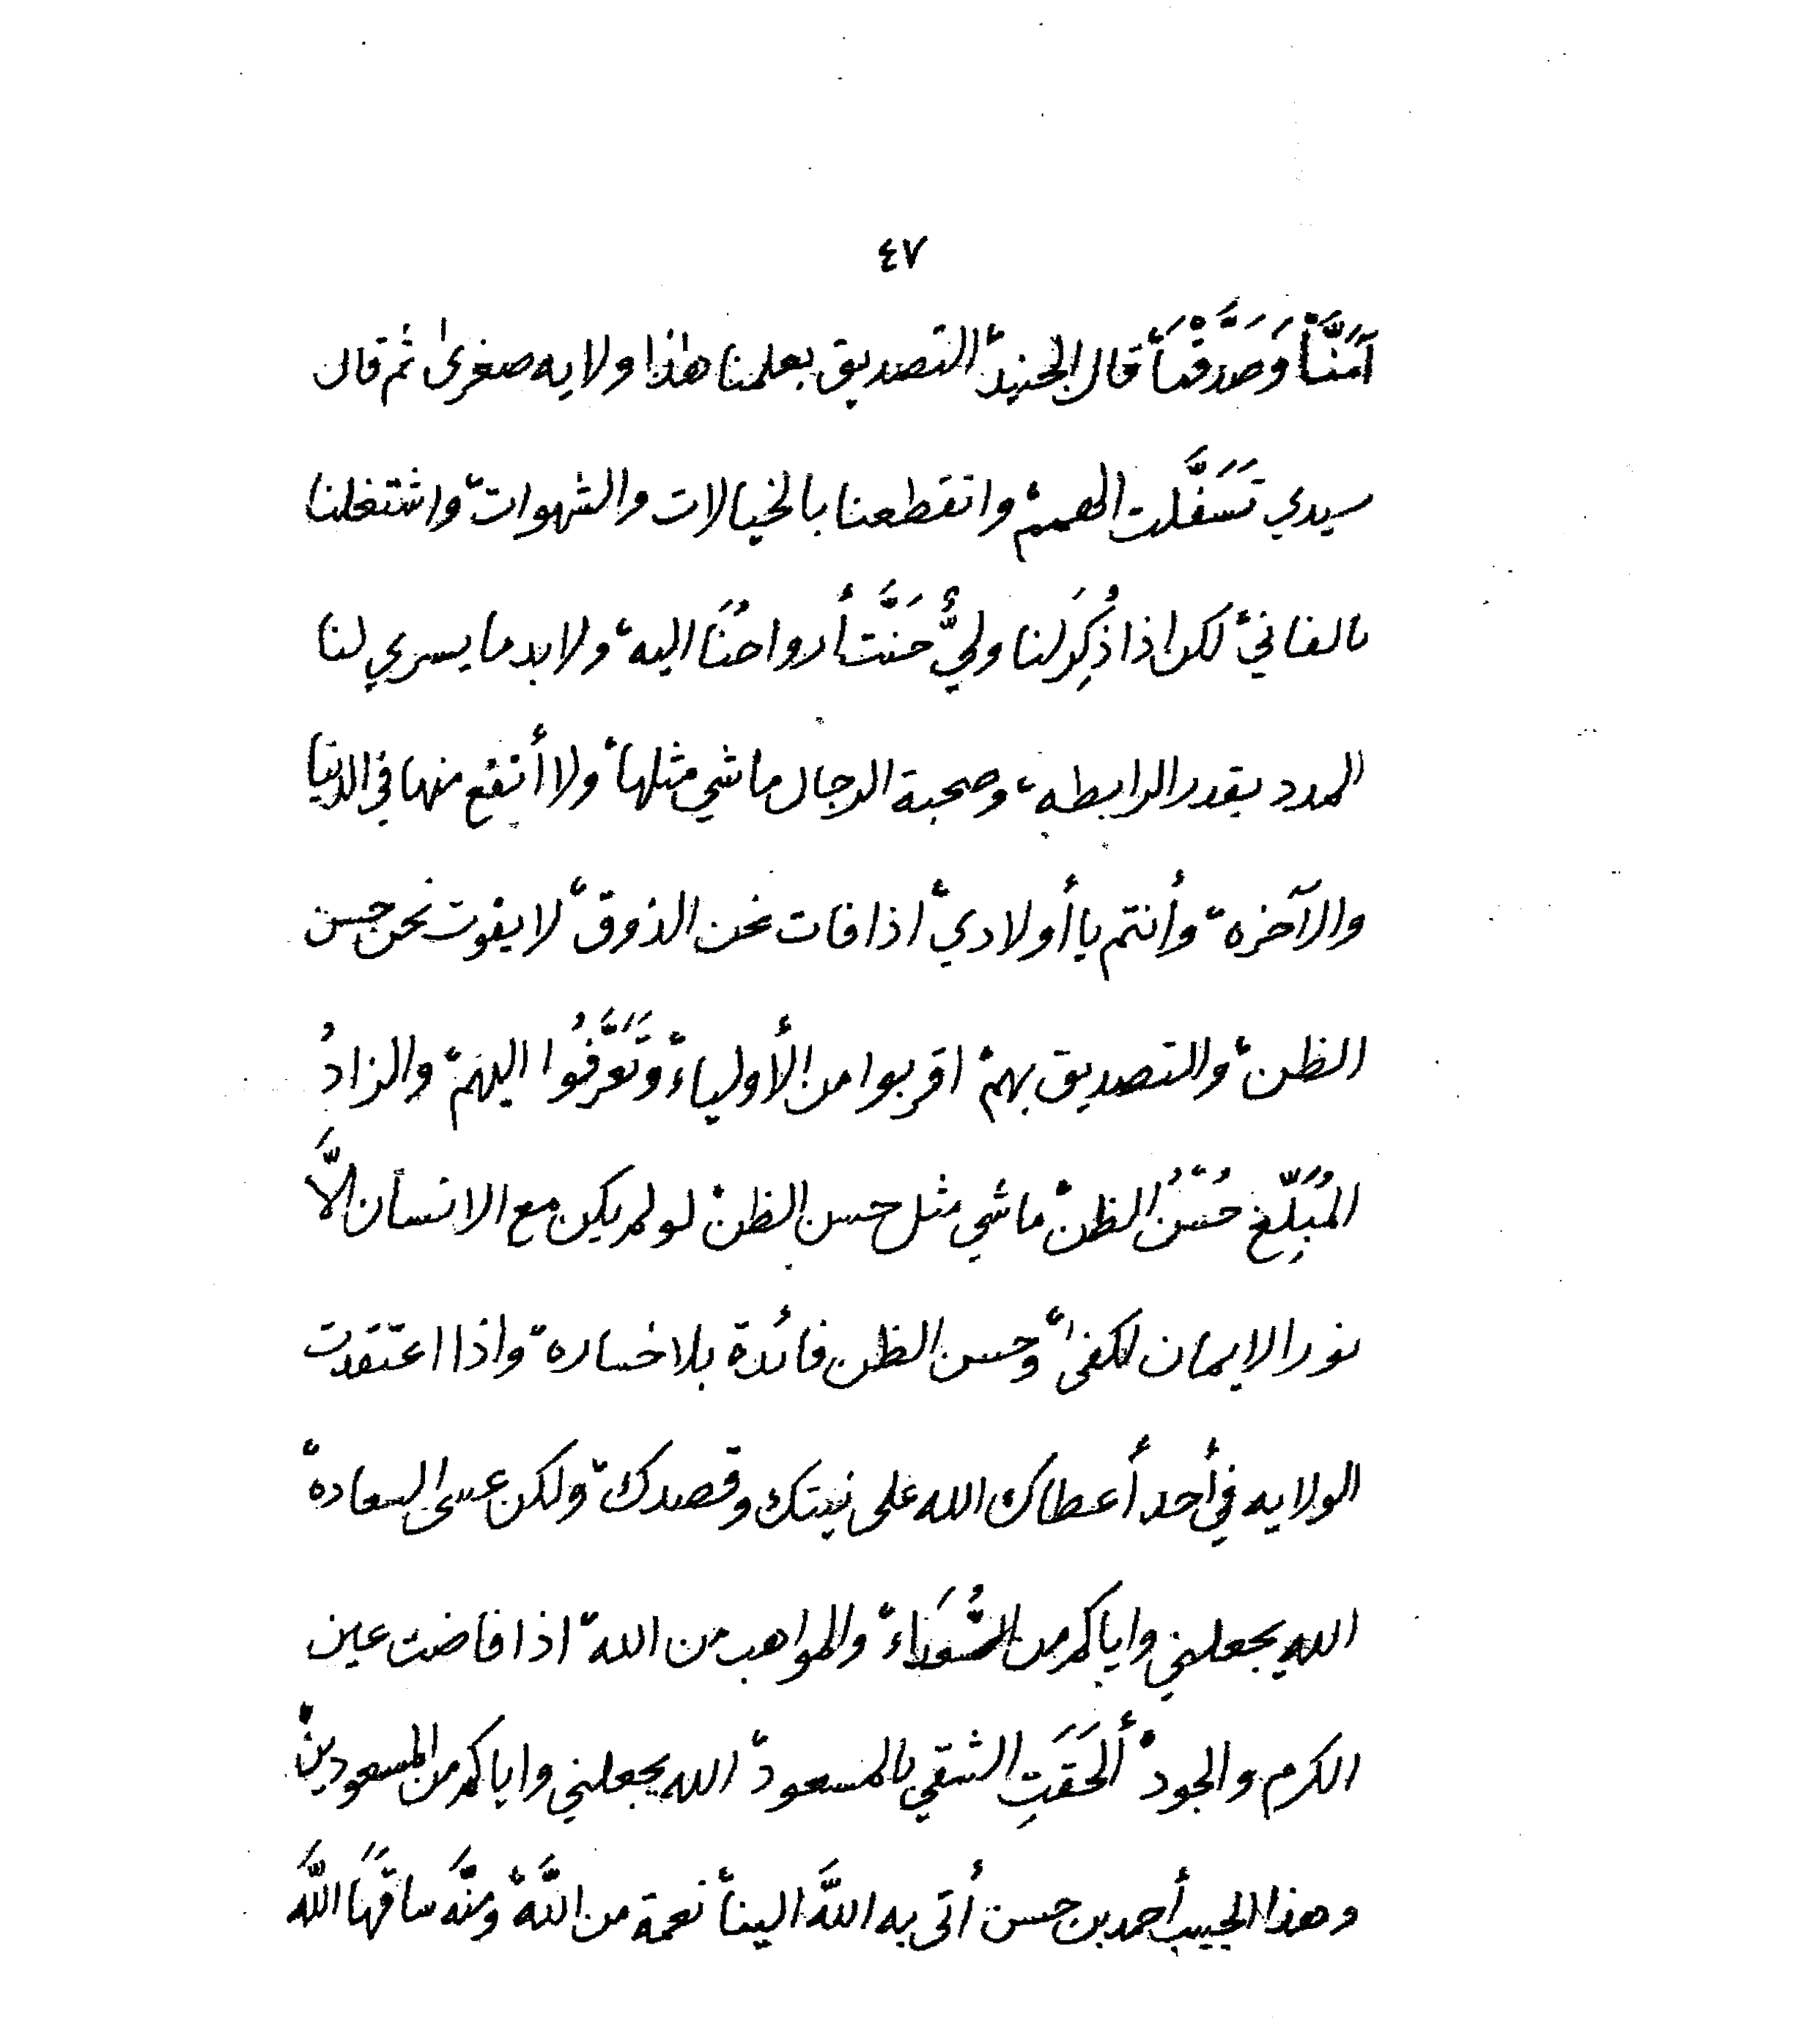 ٤٧
آمَنَّا وَصَدَّقْنَا، قال الجنيد، التصديق بعلمنا هذا ولايه صغرى، ثم قال
سيدي تَسَفَّلَت الهمم، وانقطعنا بالخيالات والشهوات، واشتغلنا
بالفاني، لكن اذا ذُكِرَ لنا وليٌّ حَنَّت أرواحُنَا اليه، ولابد ما يسري لنا
المدد بقدر الرابطه، وصحبة الرجال ماشي مثلها، ولا أنفع منها في الدنيا
والآخره، وأنتم يا أولادي، اذا فات نحن الذوق، لا يفوت نحن حسن
الظن، والتصديق بهم، اقربوا من الأولياء، وَتَعَرَّفُوا اليهم، والزادُ
المُبَلِّغ حُسْنُ الظن، ماشي مثل حسن الظن، لو لم يكن مع الانسان الَّا
نور الايمان لكفى، وحسن الظن فائدة بلا خساره، واذا اعتقدت
الولايه في أحد أعطاك الله على نيتك وقصدك، ولكن عسى السعاده،
الله يجعلني واياكم من السُّعَدَاء، والمواهب من الله، اذا فاضت عين
الكرم والجود، ألحَقَتِ الشقي بالمسعود، الله يجعلني واياكم من المسعودين،
وهذا الحبيب أحمد بن حسن أتى به اللَّه الينا، نعمة من اللَّه، ومنَّه ساقَهَا اللَّه